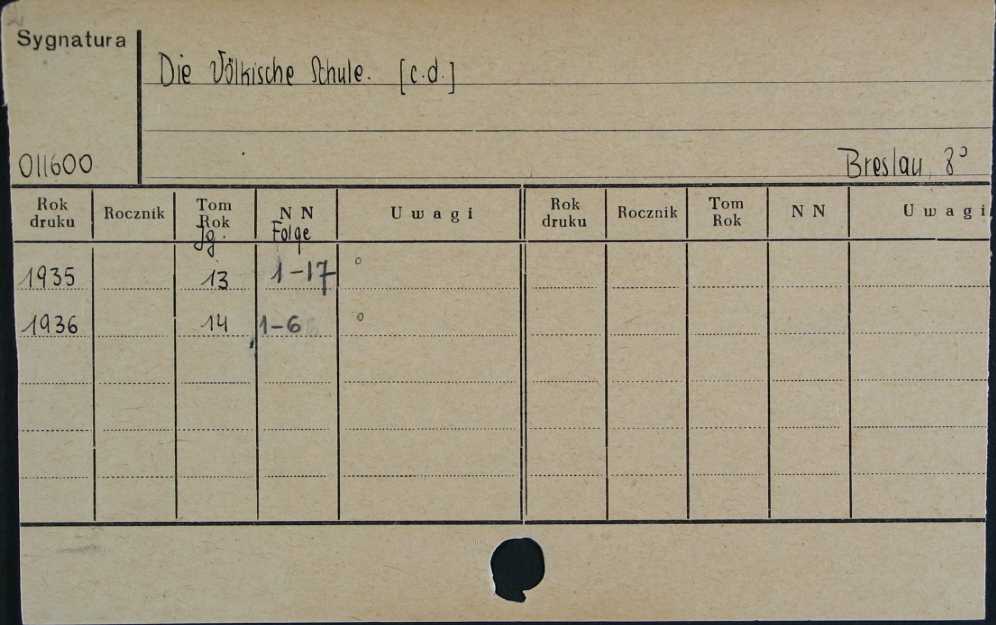 Sygnatura
Die Völkische Schule. [c.d.]
011600
Breslau 8°
Rok druku Rocznik Tom Rok NN Uwagi Rok druku Rocznik Tom Rok NN Uwagi
Jg. Folge
1935 13 1-17 °
1936 14 1-6 °